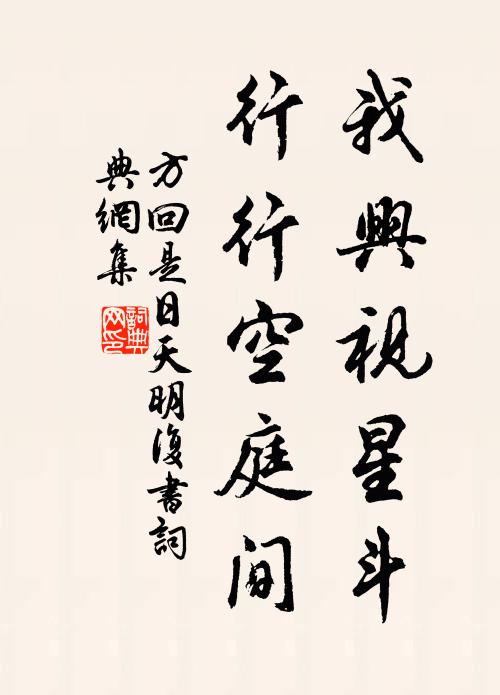 我興視星斗
行行空庭间
方回是日天明復書詞
典網集
詞典
网印